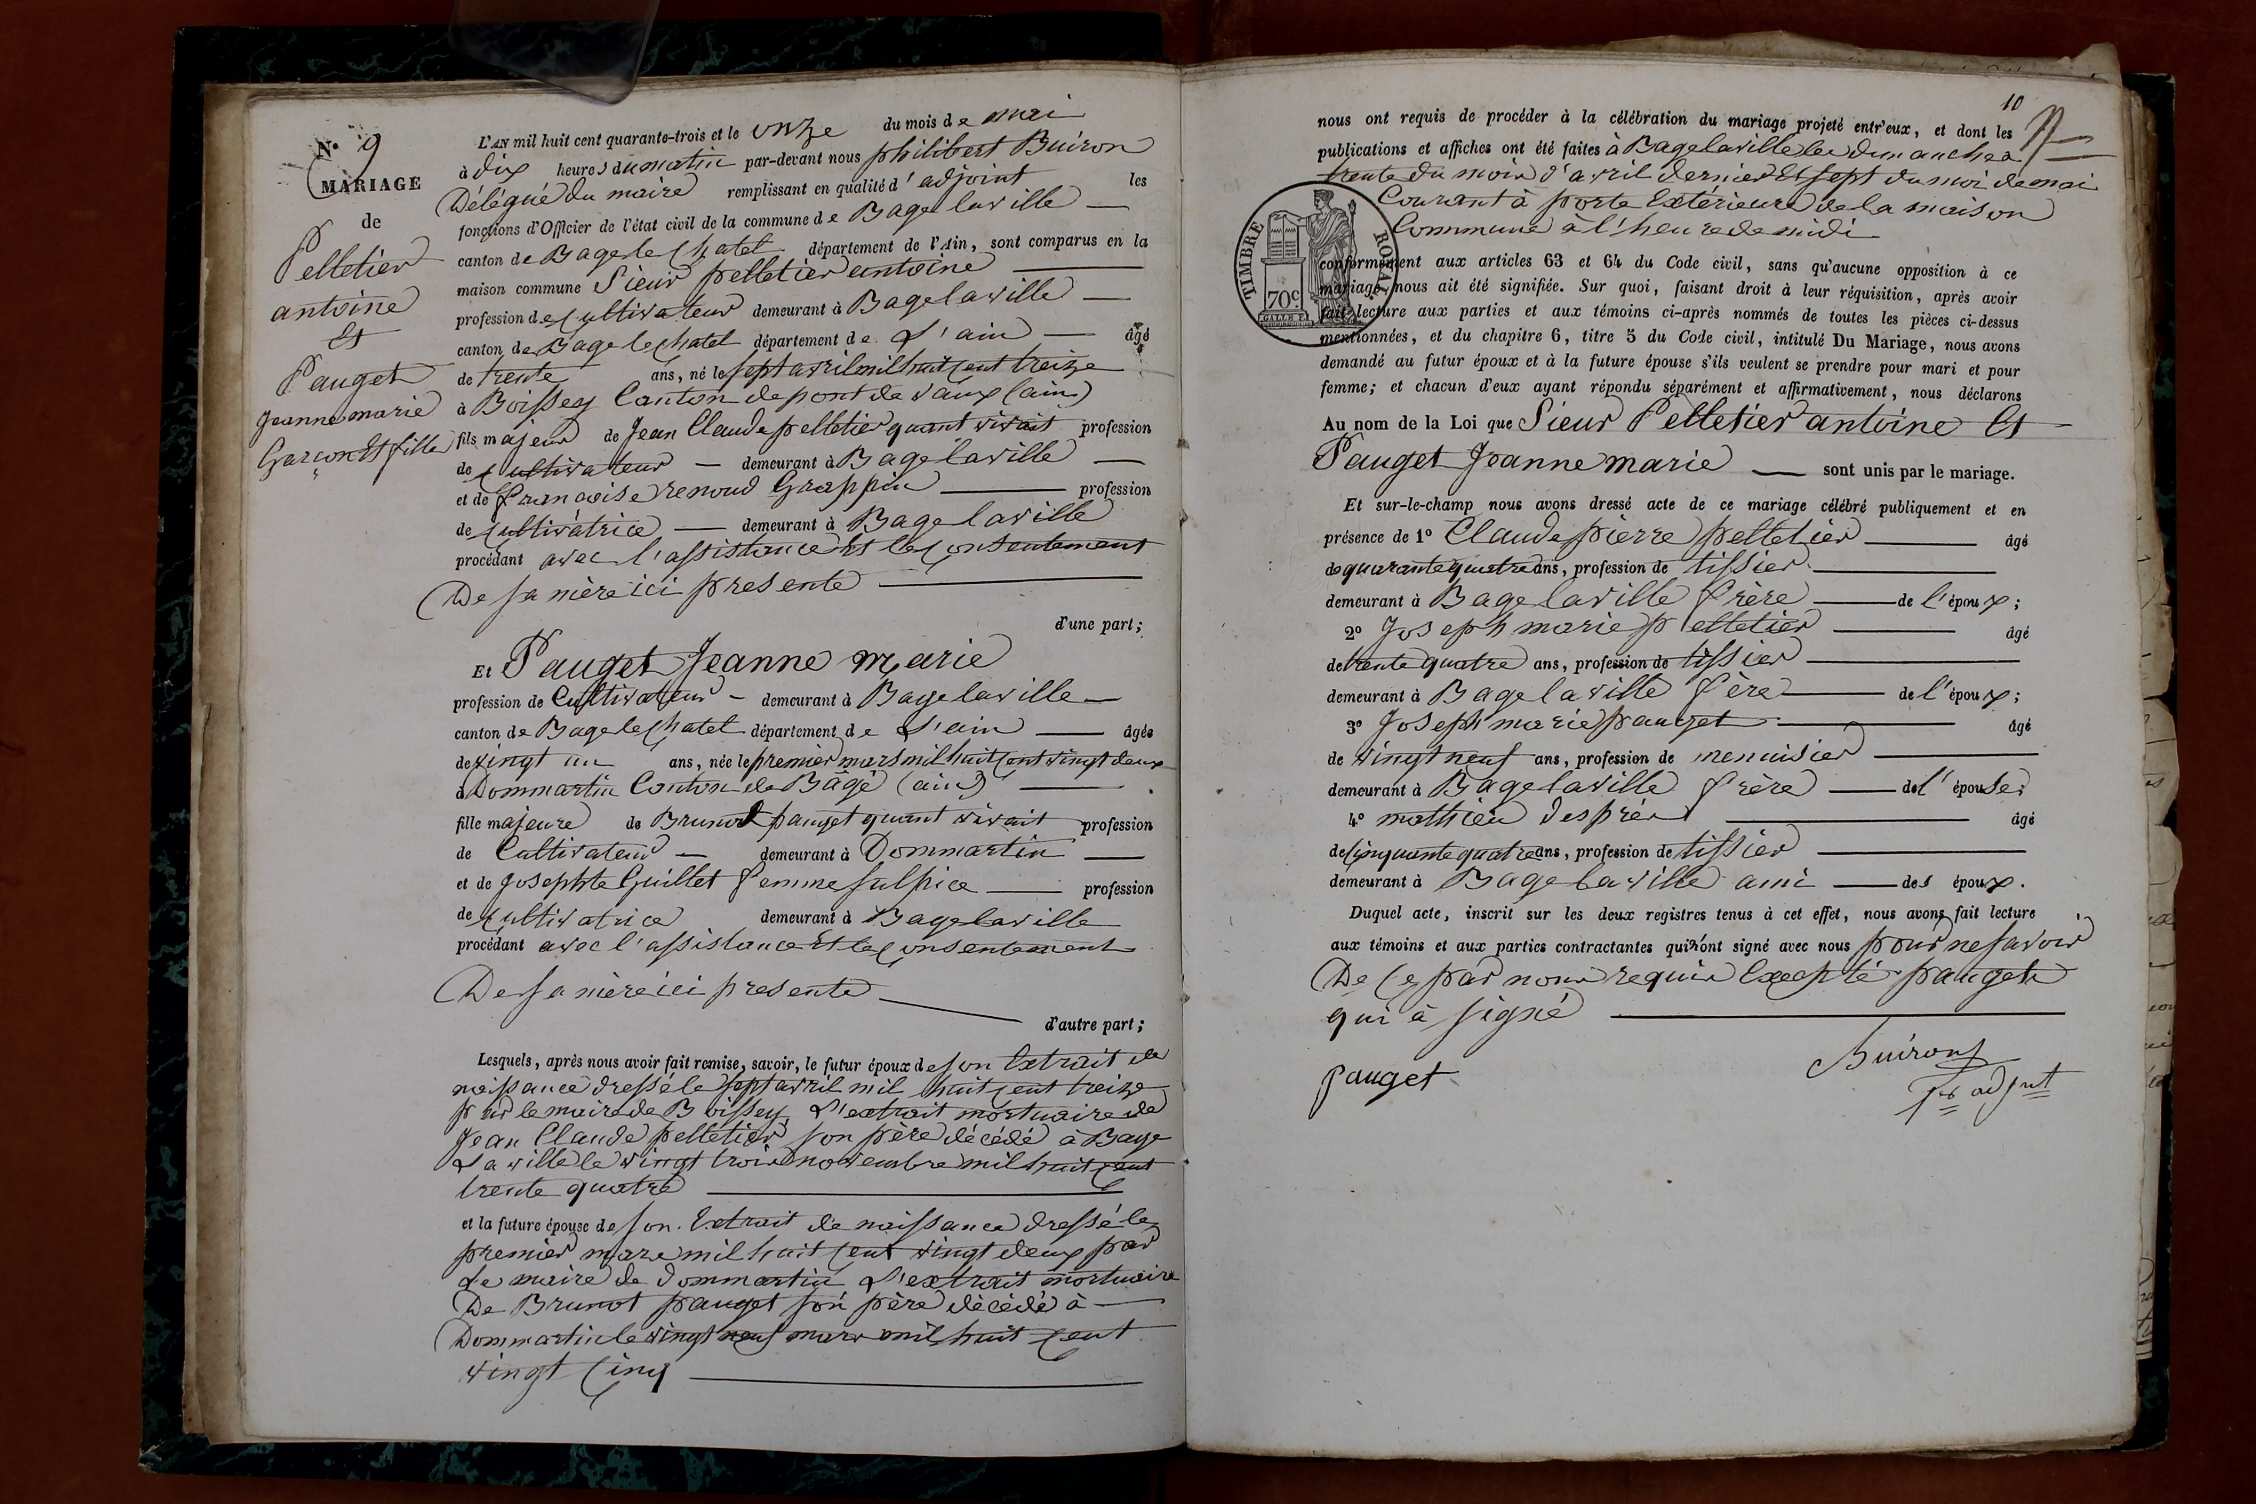 N.° 9
MARIAGE
de
Pelletier
antoine
Et
Pauget
Jeanne marie
Garçon Et fille
L'AN mil huit cent quarante-trois et le onze du mois de mai
à dix heures du matin par-devant nous philibert Buiron
Délégué du maire remplissant en qualité d'adjoint les
fonctions d'Officier de l'état civil de la commune de Bagelaville
canton de Bagelechatel département de l'Ain, sont comparus en la
maison commune Sieur pelletier antoine
profession de Cultivateur demeurant à Bagelaville
canton de Bagelechatel département de L'ain âgé
de trente ans, né le sept avril mil huit Cent treize
à Boissey Canton de pont de vaux (ain)
fils majeur de Jean Claude pelletier quant vivait profession
de Cultivateur demeurant à Bagelaville
et de françoise renoud Grappin profession
de Cultivátrice demeurant à Bagelaville
procédant avec l'assistance Et le Consentement
De sa mère ici presente
d'une part;
Et Pauget Jeanne marie
profession de Cultivateur demeurant à Bagelaville
canton de Bagelechatel département de L'ain âgée
de vingt un ans, née le premier mars mil huit Cent vingt deux
à Dommartin Canton de Bâgé (ain)
fille majeure de Brunot pauget quant vivait profession
de Cultivateur demeurant à Dommartin
et de Josephte Guillet femme sulpice profession
de Cultivatrice demeurant à Bagelaville
procédant avec l'assistance Et le Consentement
De sa mère ici presente
d'autre part;
Lesquels, après nous avoir fait remise, savoir, le futur époux de son Extrait de
naissance dressé le sept avril mil huit Cent treize
par le maire de Boissey, L'extrait mortuaire de
Jean Claude pelletier son père décédé à Bage
La ville le vingt trois novembre mil huit Cent
trente quatre
et la future épouse de son Extrait de naissance dressé le
premier mars mil huit Cent vingt deux par
Le maire de Dommartin L'extrait mortuaire
De Brunot pauget son père décédé à
Dommartin le vingt neuf mars mil huit Cent
vingt Cinq
10
nous ont requis de procéder à la célébration du mariage projeté entr'eux, et dont les
publications et affiches ont été faites à Bagelaville les dimanches
trente du mois d'avril dernier Et sept du moi de mai
Courant à porte Extérieure de la maison
Commune à l'heure de midi
TIMBRE ROYAL
70c.
conformément aux articles 63 et 64 du Code civil, sans qu'aucune opposition à ce
mariage nous ait été signifiée. Sur quoi, faisant droit à leur réquisition, après avoir
fait lecture aux parties et aux témoins ci-après nommés de toutes les pièces ci-dessus
mentionnées, et du chapitre 6, titre 5 du Code civil, intitulé Du Mariage, nous avons
demandé au futur époux et à la future épouse s'ils veulent se prendre pour mari et pour
femme; et chacun d'eux ayant répondu séparément et affirmativement, nous déclarons
Au nom de la Loi que Sieur Pelletier antoine Et
Pauget Jeanne marie sont unis par le mariage.
Et sur-le-champ nous avons dressé acte de ce mariage célébré publiquement et en
présence de 1° Claude pierre pelletier âgé
de quarante quatre ans, profession de tissier
demeurant à Bagelaville frère de l'époux;
2° Joseph marie pelletier âgé
de trente quatre ans, profession de tissier
demeurant à Bagelaville fère de l'époux;
3° Joseph marie pauget âgé
de vingt neuf ans, profession de menuisier
demeurant à Bagelaville frère de l'épouse;
4° mathieu desprès âgé
de Cinquante quatre ans, profession de tissier
demeurant à Bagelaville ami des époux.
Duquel acte, inscrit sur les deux registres tenus à cet effet, nous avons fait lecture
aux témoins et aux parties contractantes qui n'ont signé avec nous pour ne savoir
De Ce par nous requis Excepté pauget
qui à signé
Pauget
Buiron
adjnt